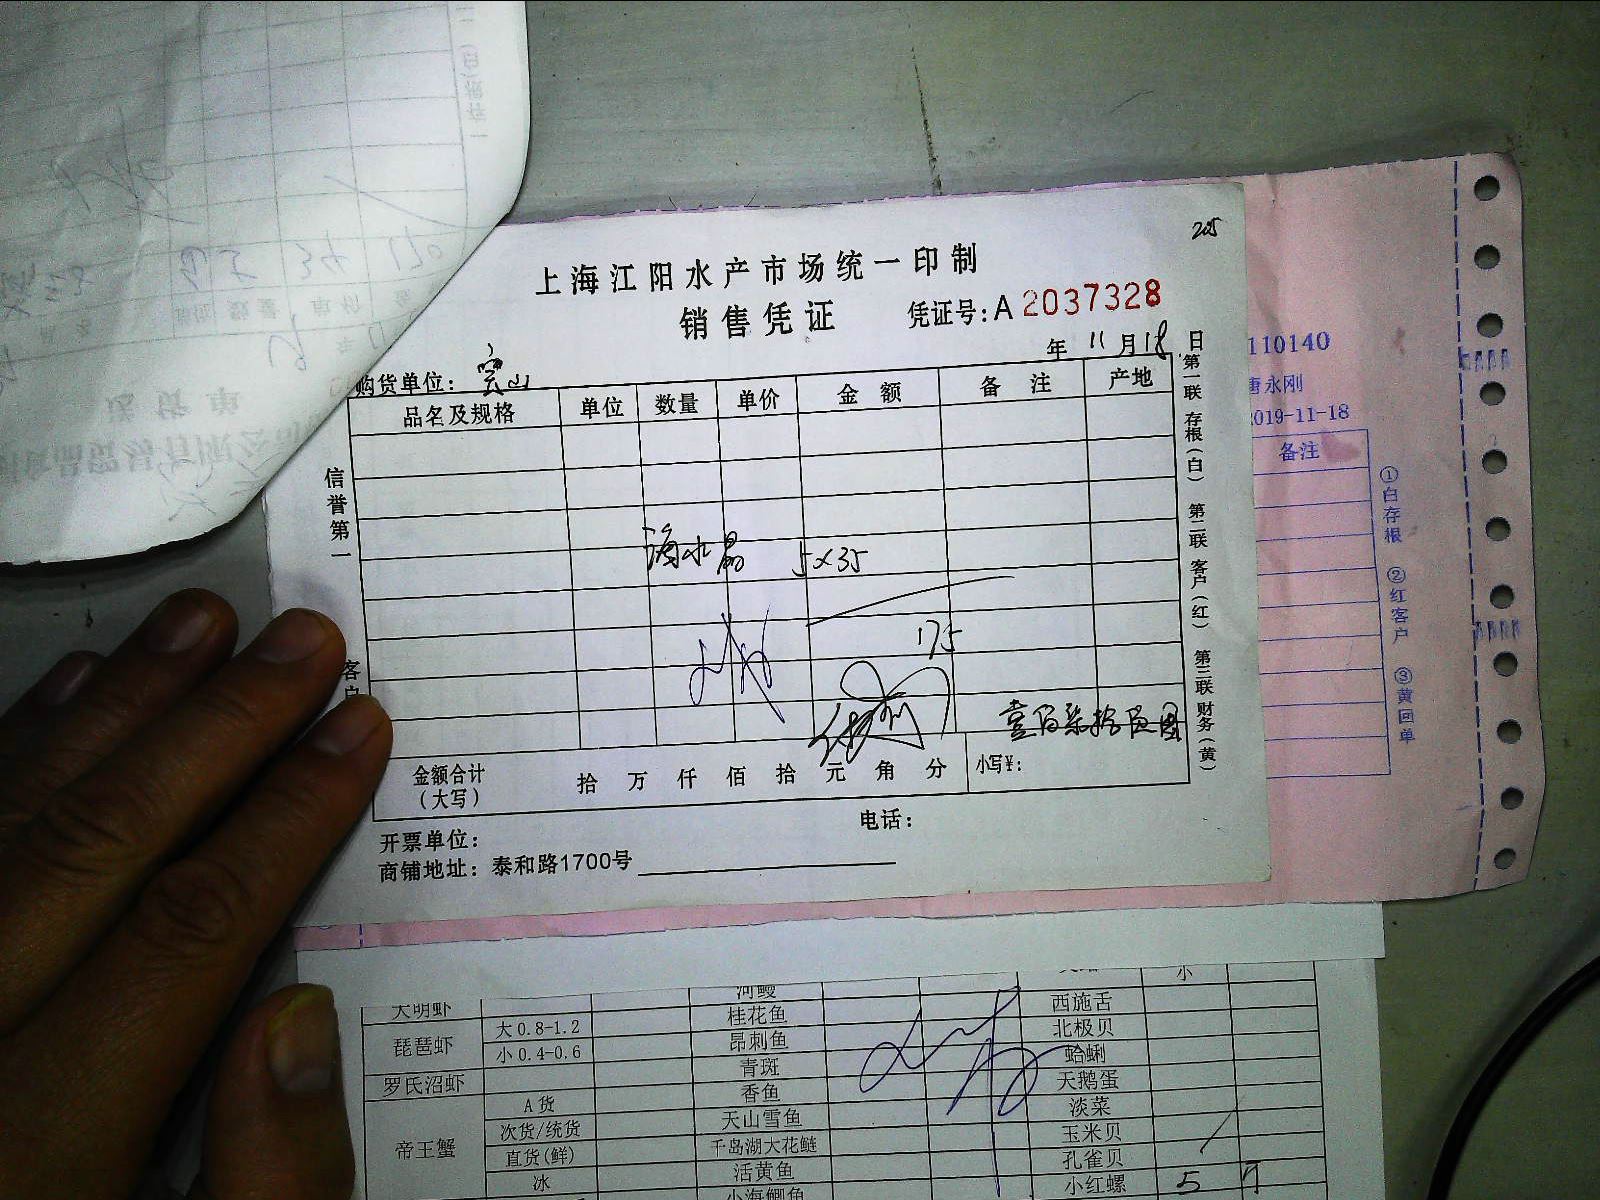 205
上海江阳水产市场统一印制
销售凭证 凭证号:A 2037328
年 11月18日
购货单位: 宝山
品名及规格 单位 数量 单价 金额 备注 产地
海水晶 5×35
175
壹佰柒拾伍圆
金额合计(大写) 拾 万 仟 佰 拾 元 角 分 小写¥:
开票单位: 电话:
商铺地址: 泰和路1700号
信誉第一
客户
第一联 存根(白) 第二联 客户(红) 第三联 财务(黄)
110140
唐永刚
2019-11-18
备注
①白存根 ②红客户 ③黄回单
送货单
大明虾 河鳗 小
琵琶虾 大0.8-1.2 桂花鱼 西施舌
小0.4-0.6 昂刺鱼 北极贝
罗氏沼虾 青斑 蛤蜊
帝王蟹 A货 香鱼 天鹅蛋
次货/统货 天山雪鱼 淡菜
直货(鲜) 千岛湖大花鲢 玉米贝
冰 活黄鱼 孔雀贝
小海鲫鱼 小红螺 5